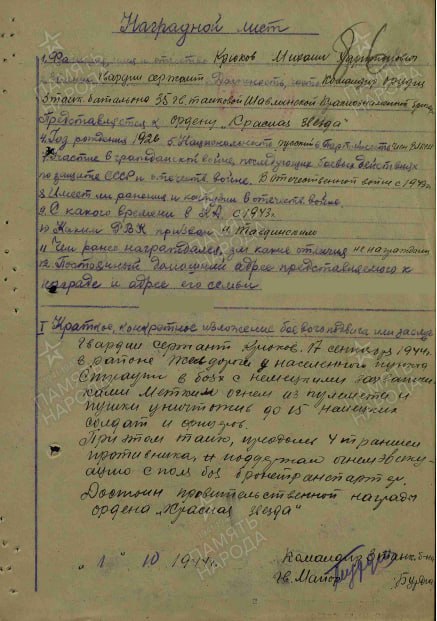 Наградной лист
1. Фамилия, имя и отчество Крюков Михаил
2. Звание Гвардии сержант Должность, часть Командир орудия
3 танк. батальона 35 гв. танковой Шавлинской Краснознаменной
Представляется к ордену "Красная Звезда"
4. Год рождения 1926 5. Национальность русский 6. Партийность член ВЛКСМ
7. Участие в гражданской войне, последующих боевых действиях
по защите СССР и отечеств. войне. В отечественной войне с 1943 г.
8. Имеет ли ранения и контузии в отечеств. войне.
9. С какого времени в КА с 1943 г.
10 Каким РВК призван Тавдинским
11 Чем ранее награждался, за какие отличия не награждался
12. Постоянный домашний адрес представляемого к
награде и адрес его семьи
I Краткое, конкретное изложение боевого подвига или заслуг
Гвардии сержант Крюков. 17 сентября 1944 г.
в районе жел. дороги у населенного пункта
в боях с немецкими
метким огнем из пулемета и
пушки уничтожив до 15 немецких
солдат и офицеров.
При этом танк, преодолев 4 траншеи
противника, и поддержал огнем эваку-
ацию с поля боя бронетранспортер.
Достоин правительственной награды
ордена "Красная звезда"
"1" 10 1944 г.
Командир 3 танк. б-на
Гв. Майор
ПАМЯТЬ НАРОДА